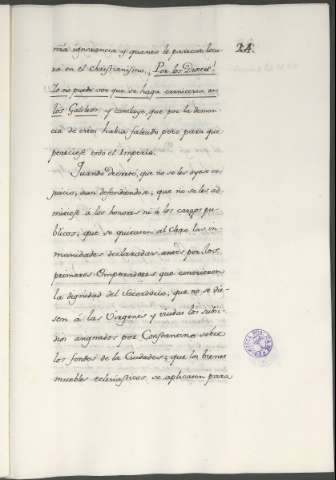 24.
ra en el Christianismo. ¡Por los Dioses!
Yo no puedo ver que se haga carniceria en
los Galileos: y concluye, que por la demen-
cia de estos habia faltado poco para que
pereciese todo el Imperio.
Juando decretó, que no se les oyese en
juicio, aun defendiendose; que no se les ad-
mitiese á los honores ni á los cargos pu-
blicos; que se quitasen al Clero las in-
munidades declaradas antes por los
primeros Emperadores que conocieron
la dignidad del Sacerdocio; que no se die-
sen á las Virgenes y viudas los subsi-
dios asignados por Constantino sobre
los fondos de la Ciudades; que los bienes
muebles eclesiasticos se aplicasen para